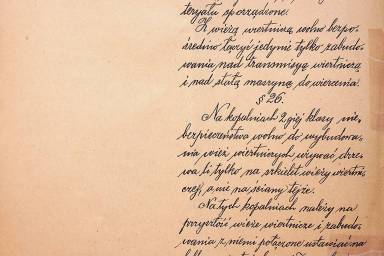 teryału sporządzone.
Z wieżą wiertniczą wolno bezpo-
średnio łączyć jedynie tylko zabudo-
wania nad transmisyą wiertniczą
i nad stałą maszyną do wiercenia.
§ 26.
Na kopalniach 2giej klasy nie-
bezpieczeństwa wolno do wybudowa-
nia wież wiertniczych używać drze-
wa li tylko na szkielet wieży wiertni-
czej, a nie na ściany tejże.
Na tych kopalniach należy na
przyszłość wieże wiertnicze i zabudo-
wania z niemi połączone ustawiać na